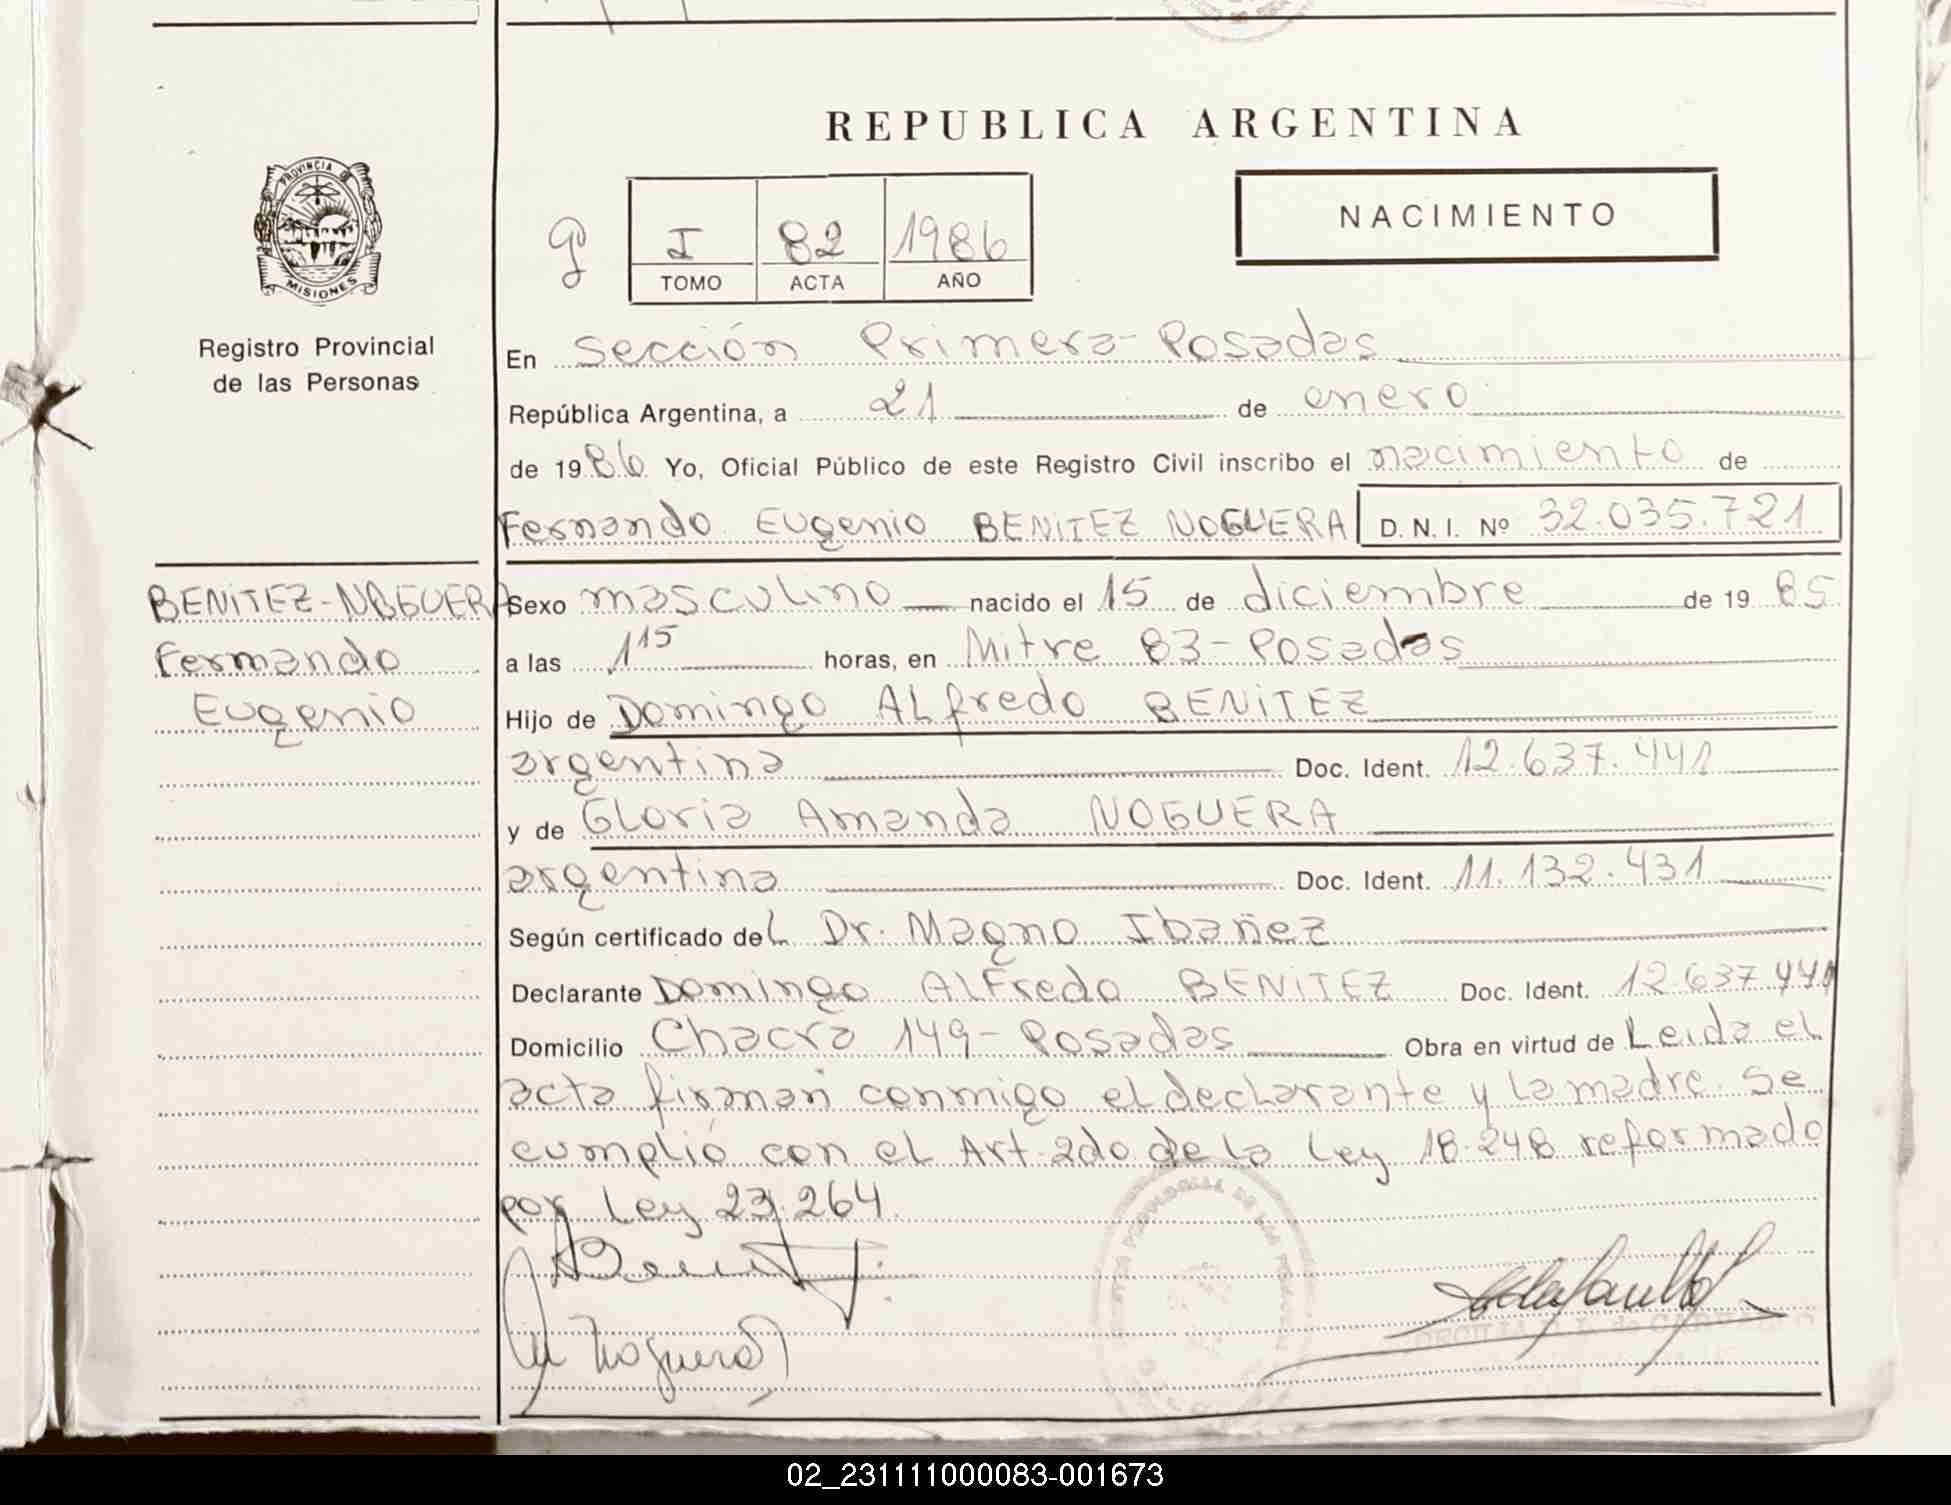 REPUBLICA ARGENTINA
PROVINCIA DE
MISIONES
Registro Provincial
de las Personas
I 82 1986
TOMO ACTA AÑO
NACIMIENTO
En Sección Primera-Posadas
República Argentina, a 21 de enero
de 1986 Yo, Oficial Público de este Registro Civil inscribo el nacimiento de
Fernando Eugenio BENITEZ NOGUERA D.N.I. Nº 32.035.721
BENITEZ-NOGUERA
Fernando
Eugenio
Sexo masculino nacido el 15 de diciembre de 1985
a las 1 15 horas, en Mitre 83-Posadas
Hijo de Domingo ALfredo BENITEZ
argentina Doc. Ident. 12.637.441
y de Gloria Amanda NOGUERA
argentina Doc. Ident. 11.132.431
Según certificado del Dr. Magno Ibañez
Declarante Domingo ALFredo BENITEZ Doc. Ident. 12.637.441
Domicilio Chacra 149-Posadas Obra en virtud de Leida el
acta firman conmigo el declarante y la madre. Se
cumplió con el Art. 2do de la Ley 18.248 reformado
por Ley 23.264.
Noguera
02_231111000083-001673